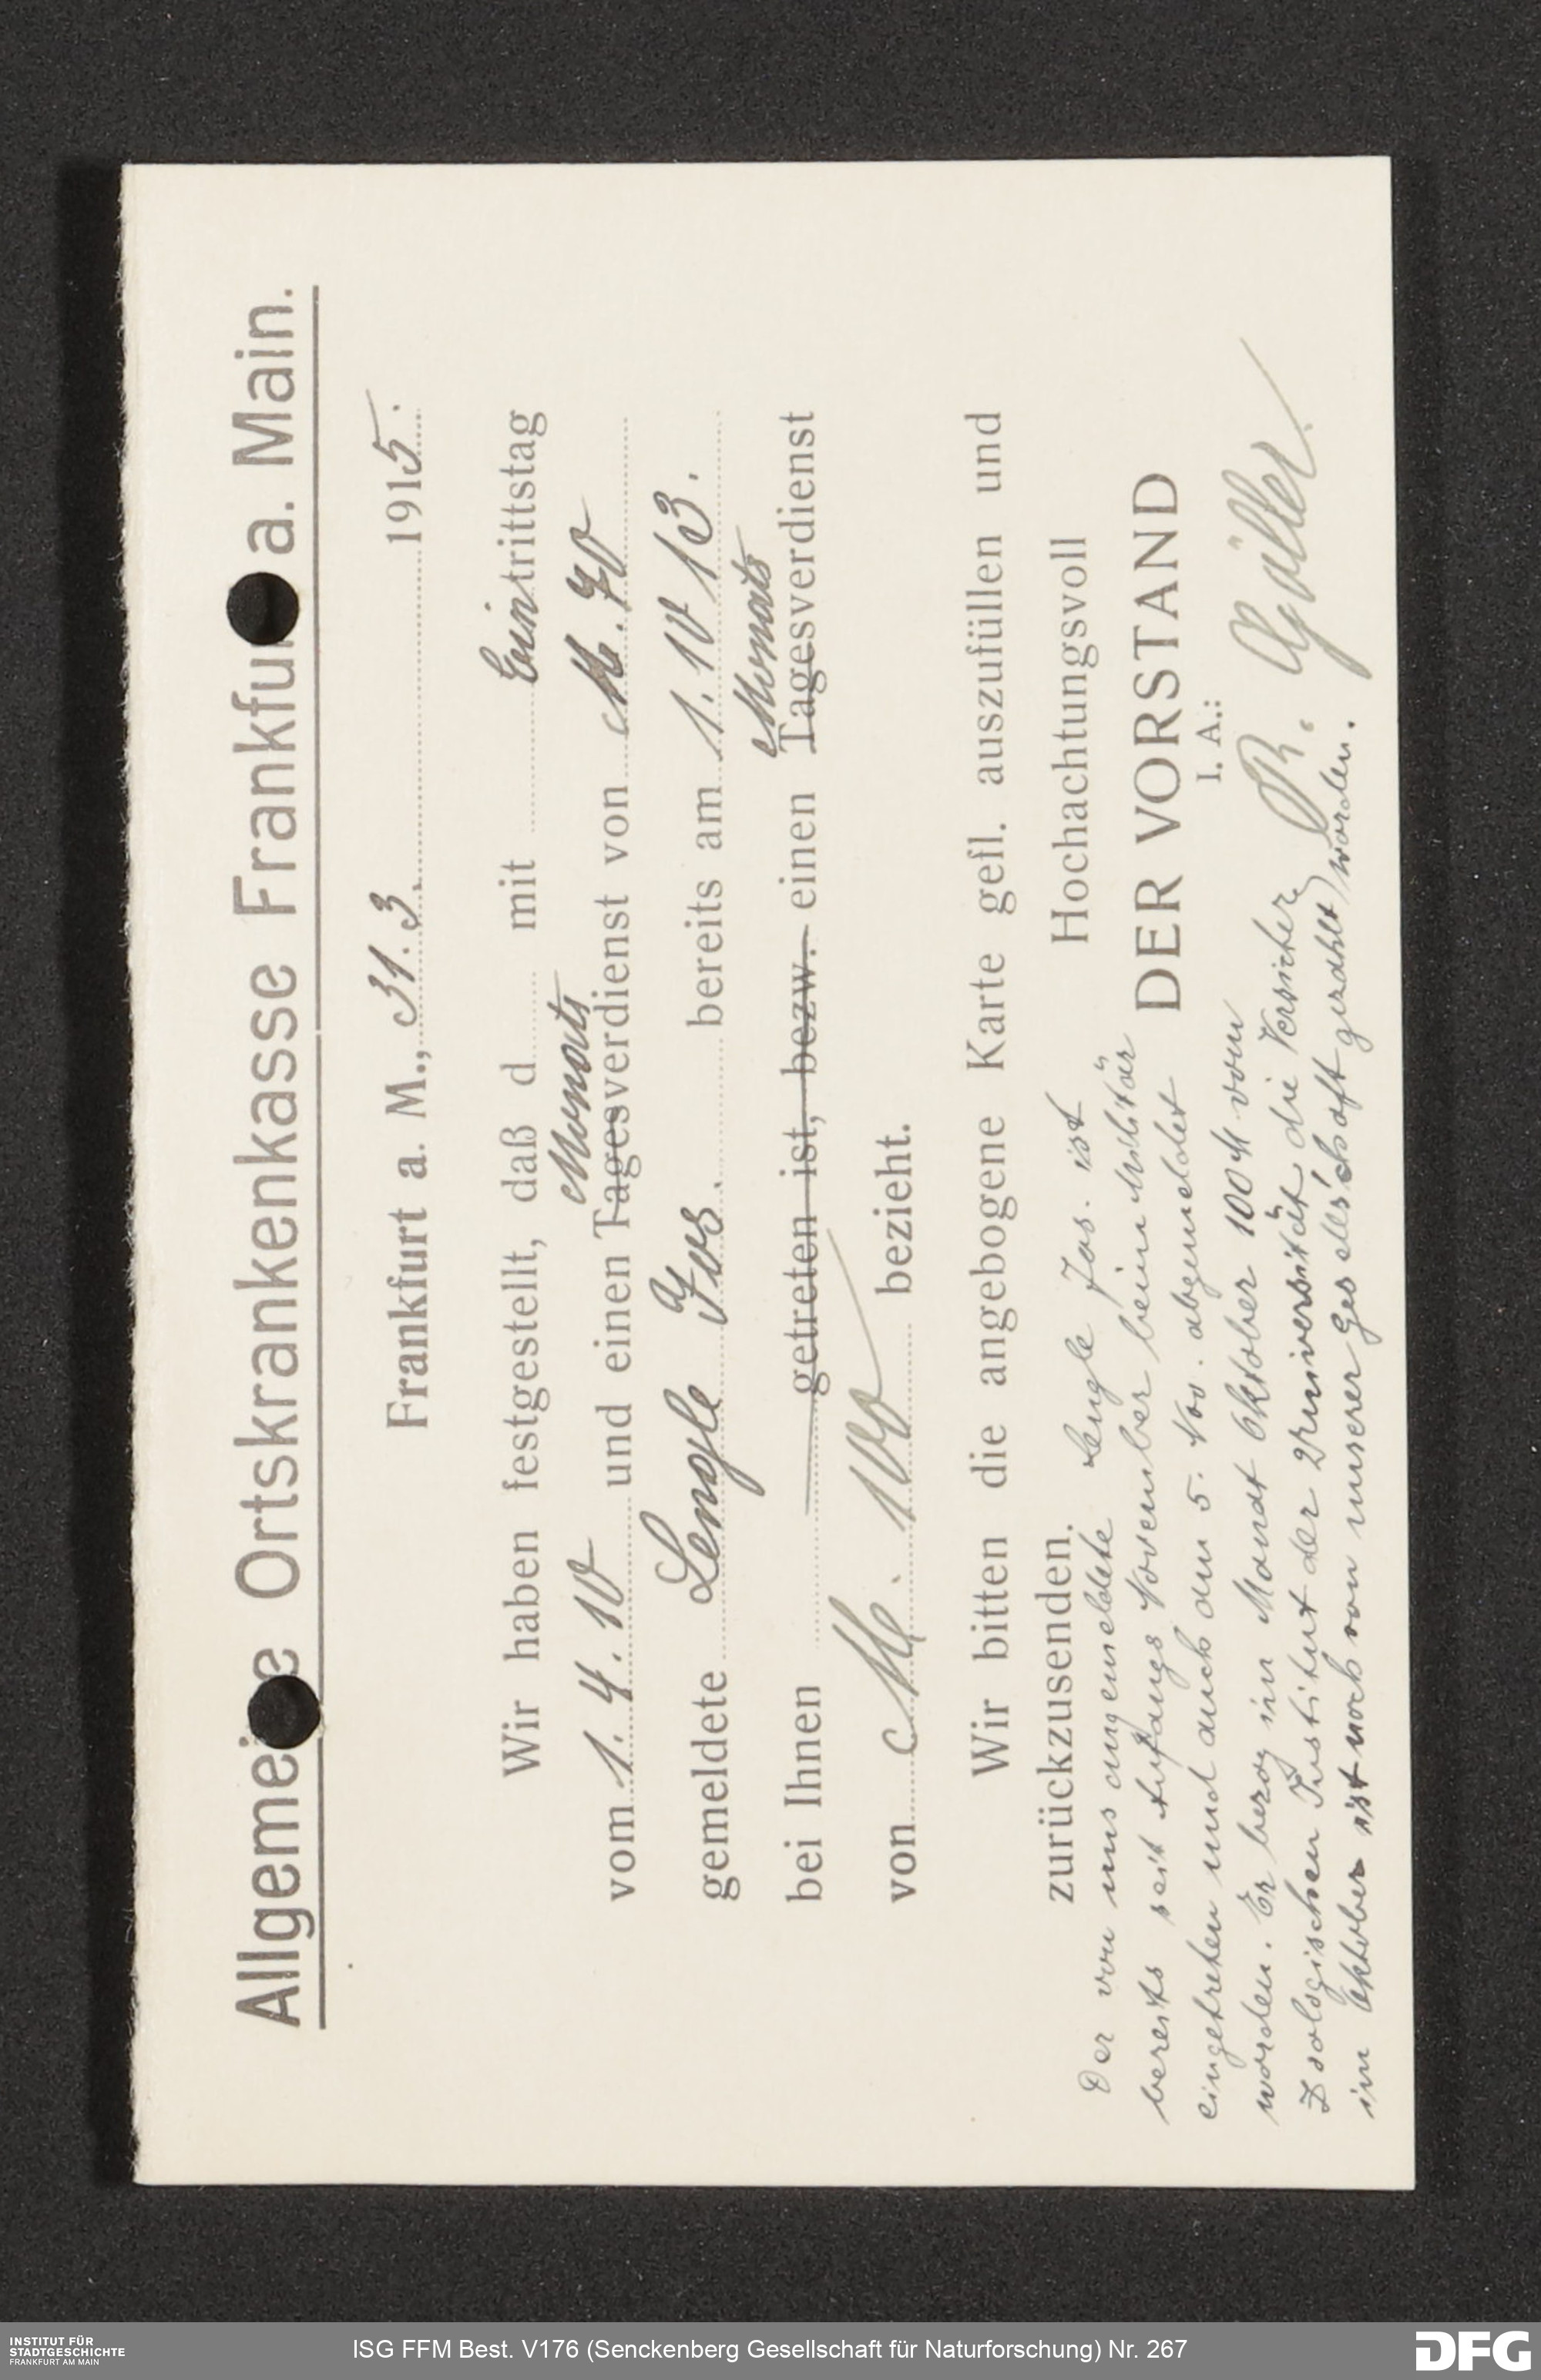 Allgemeine Ortskrankenkasse Frankfurt a. Main.
Frankfurt a. M., 31. 3. 1915.
Wir haben festgestellt, daß d mit Eintrittstag
Monats
vom 1. 4. 10 und einen Tagesverdienst von M. 70
gemeldete Lengle Jos. bereits am 1. 10 13.
Monats
bei Ihnen getreten ist, bezw. einen Tagesverdienst
von M. 100 bezieht.
Wir bitten die angebogene Karte gefl. auszufüllen und
zurückzusenden.
Hochachtungsvoll
DER VORSTAND
I. A.:
Der von uns angemeldete Lengle Jos. ist
bereits seit Anfangs November beim Militär
eingetreten und auch am 5. Nov. abgemeldet
worden. Er bezog im Monat Oktober 100 M vom
Zoologischen Institut der Universität die Versicher
im Oktober ist noch von unserer Gesellschaft gezahlt worden.
INSTITUT FÜR
STADTGESCHICHTE
FRANKFURT AM MAIN
ISG FFM Best. V176 (Senckenberg Gesellschaft für Naturforschung) Nr. 267
DFG